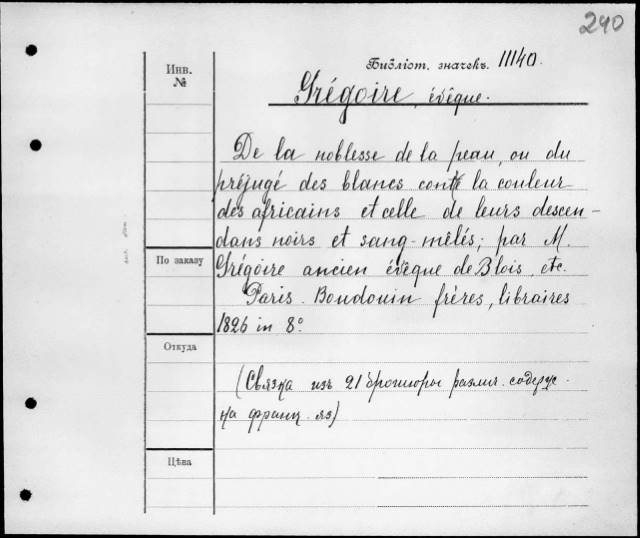 240
Инв. №
Библіот. значекъ. 11140.
Grégoire, évêque.
De la noblesse de la peau, ou du
préjugé des blancs contre la couleur
des africains et celle de leurs descen-
dans noirs et sang-mêlés; par M.
По заказу
Grégoire ancien évêque de Blois, etc.
Paris. Boudouin frères, libraires
1826 in 8°.
Откуда
(Связка изъ 21 брошюры различ. содерж.
на франц. яз)
Цѣна